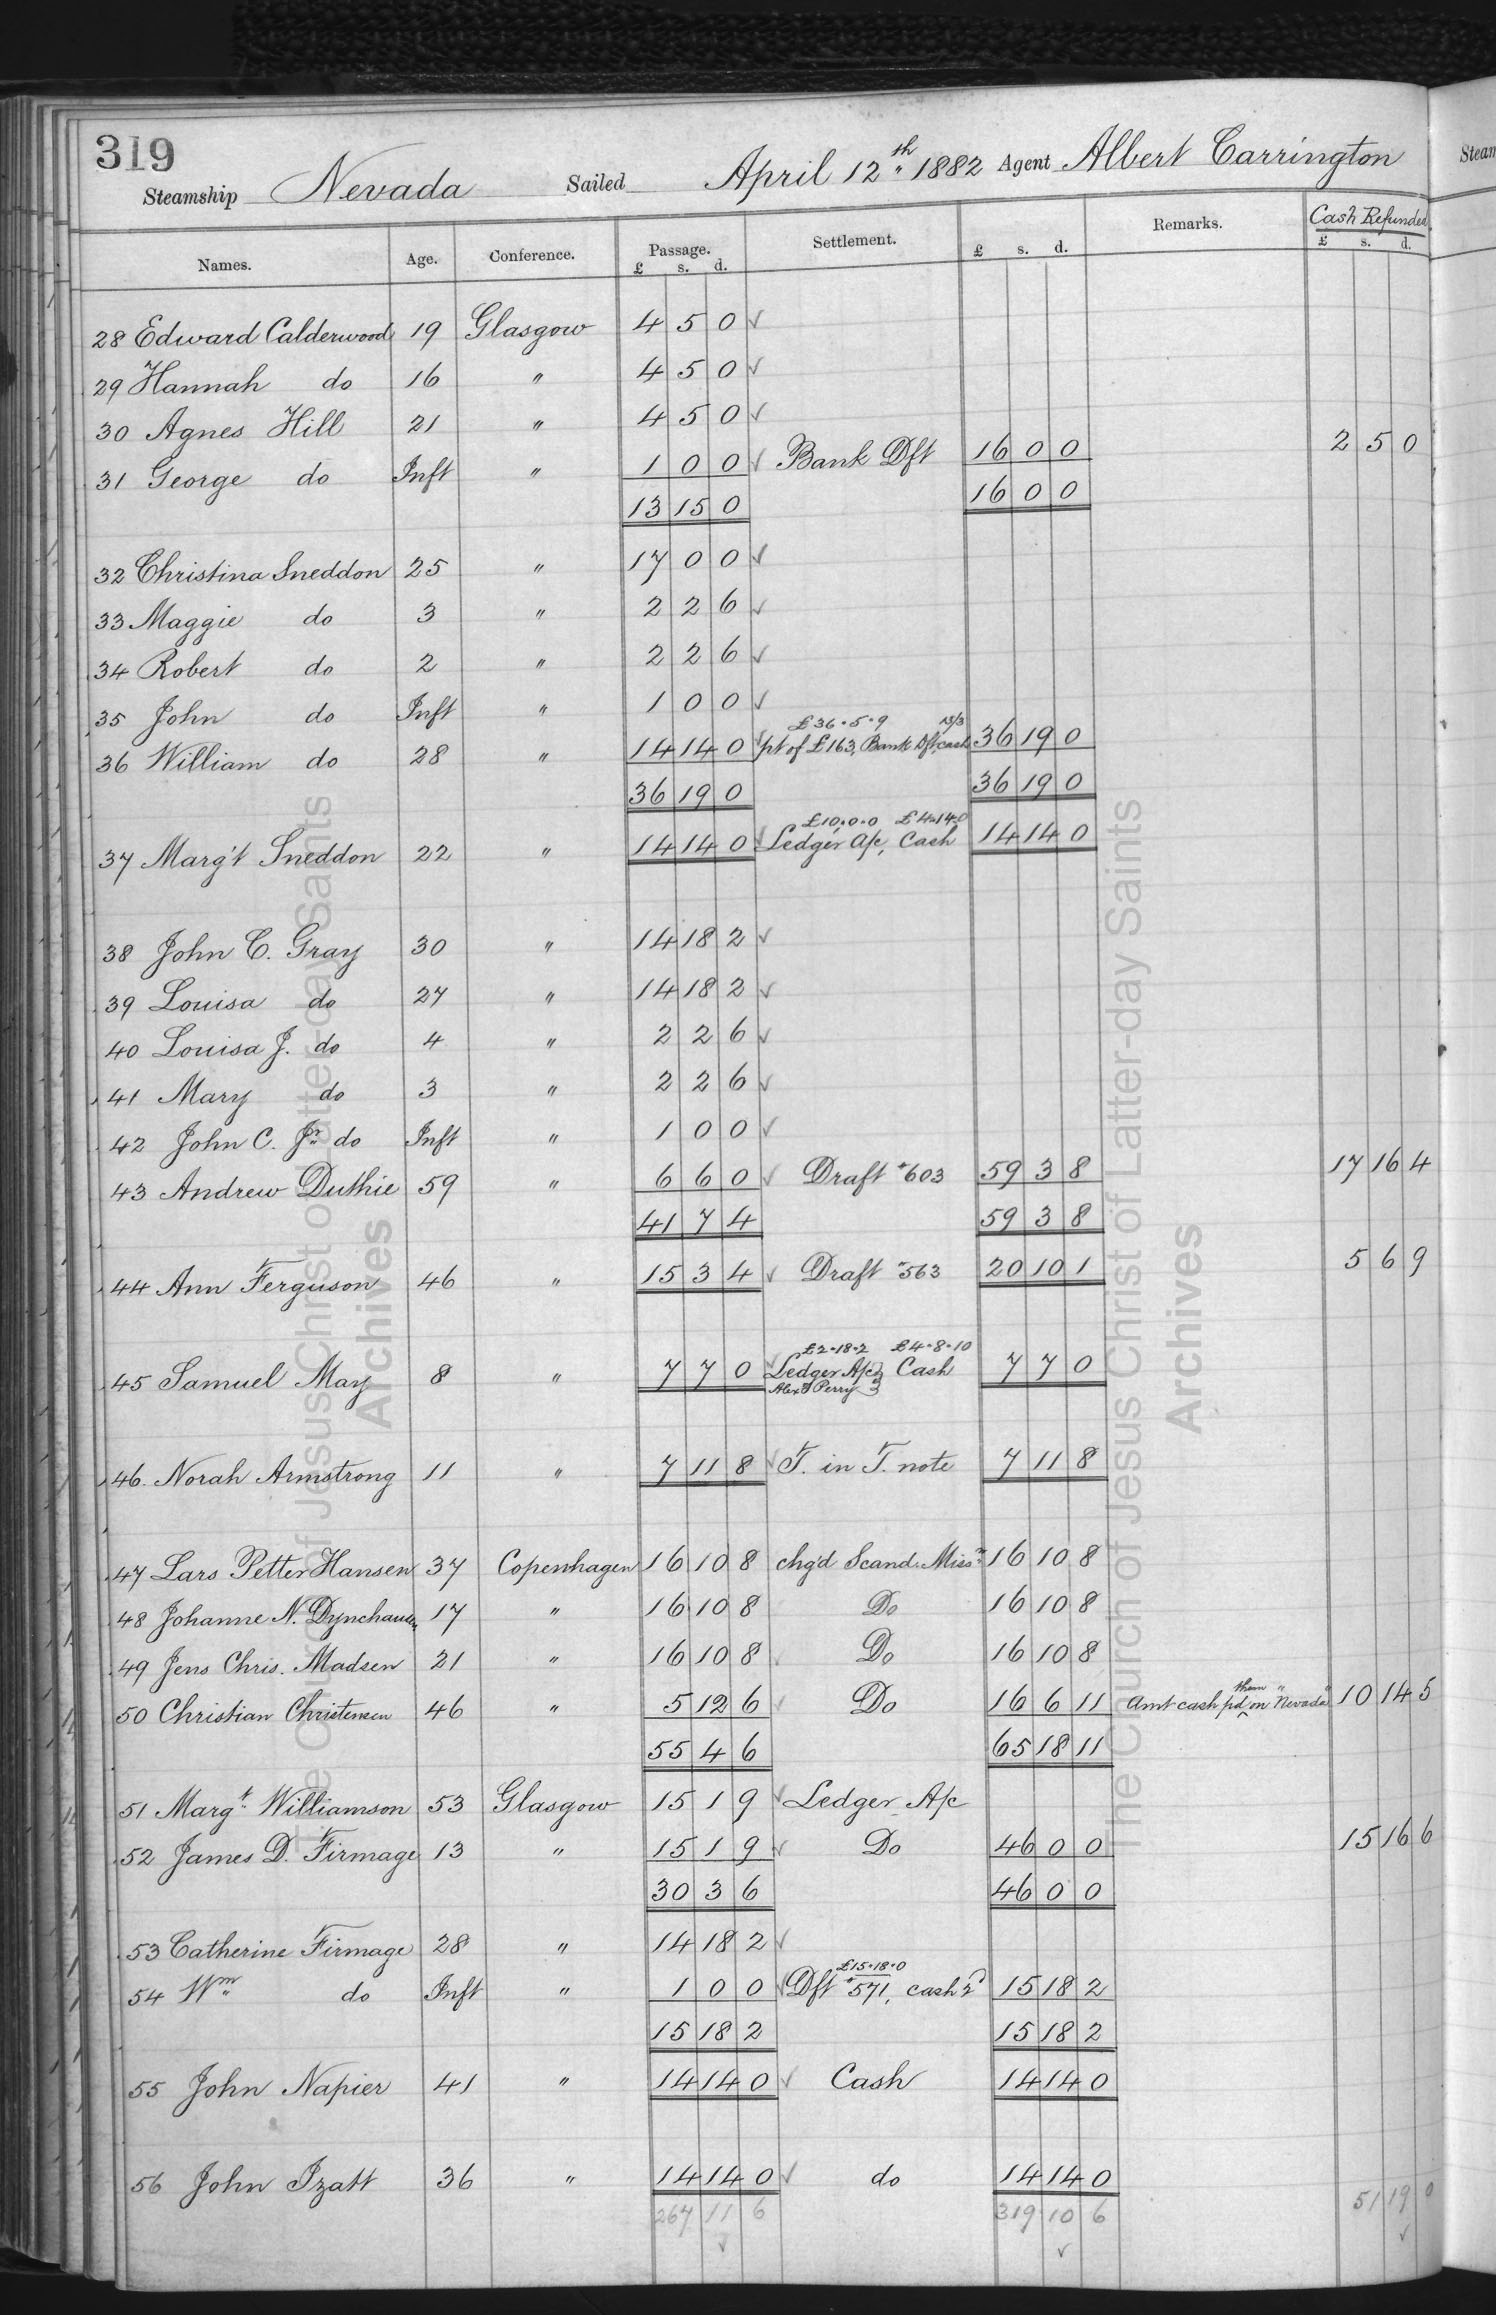 319
Steamship Nevada Sailed April 12th 1882 Agent Albert Carrington
Names. Age. Conference. Passage. Settlement. Remarks. Cash Refunded
£ s. d. £ s. d. £ s. d.
28 Edward Calderwood 19 Glasgow 4 5 0 ✓
29 Hannah do 16 " 4 5 0 ✓
30 Agnes Hill 21 " 4 5 0 ✓
31 George do Inft " 1 0 0 ✓ Bank Dft 16 0 0 2 5 0
13 15 0 16 0 0
32 Christina Sneddon 25 " 17 0 0 ✓
33 Maggie do 3 " 2 2 6 ✓
34 Robert do 2 " 2 2 6 ✓
35 John do Inft " 1 0 0 ✓
£36.5.9 13/3
36 William do 28 " 14 14 0 ✓ pt of £163, Bank Dft, cash 36 19 0
36 19 0 36 19 0
£10.0.0 £4.14.0
37 Marg't Sneddon 22 " 14 14 0 ✓ Ledger A/c, Cash 14 14 0
38 John C. Gray 30 " 14 18 2 ✓
39 Louisa do 27 " 14 18 2 ✓
40 Louisa J. do 4 " 2 2 6 ✓
41 Mary do 3 " 2 2 6 ✓
42 John C. Jr do Inft " 1 0 0 ✓
43 Andrew Duthie 59 " 6 6 0 ✓ Draft #603 59 3 8 17 16 4
41 7 4 59 3 8
44 Ann Ferguson 46 " 15 3 4 ✓ Draft #563 20 10 1 5 6 9
£2.18.2 £4.8.10
45 Samuel May 8 " 7 7 0 ✓ Ledger A/c Cash 7 7 0
Alex Perry
46. Norah Armstrong 11 " 7 11 8 ✓ T. in T. note 7 11 8
47 Lars Petter Hansen 37 Copenhagen 16 10 8 chgd Scand. Missn 16 10 8
48 Johanne N. 17 " 16 10 8 Do 16 10 8
49 Jens Chris. Madsen 21 " 16 10 8 Do 16 10 8
50 Christian Christensen 46 " 5 12 6 Do 16 6 11 Amt cash pd them on "Nevada" 10 14 5
55 4 6 65 18 11
51 Margt Williamson 53 Glasgow 15 1 9 ✓ Ledger A/c
52 James D. Firmage 13 " 15 1 9 ✓ Do 46 0 0 15 16 6
30 3 6 46 0 0
53 Catherine Firmage 28 " 14 18 2 ✓
£15.18.0
54 Wm do Inft " 1 0 0 ✓ Dft #571, cash 2d 15 18 2
15 18 2 15 18 2
55 John Napier 41 " 14 14 0 ✓ Cash 14 14 0
56 John Izatt 36 " 14 14 0 ✓ do 14 14 0
267 11 6 319 10 6 51 19 0
✓ ✓ ✓
Steam
The Church of Jesus Christ of Latter-day Saints
Archives
The Church of Jesus Christ of Latter-day Saints
Archives